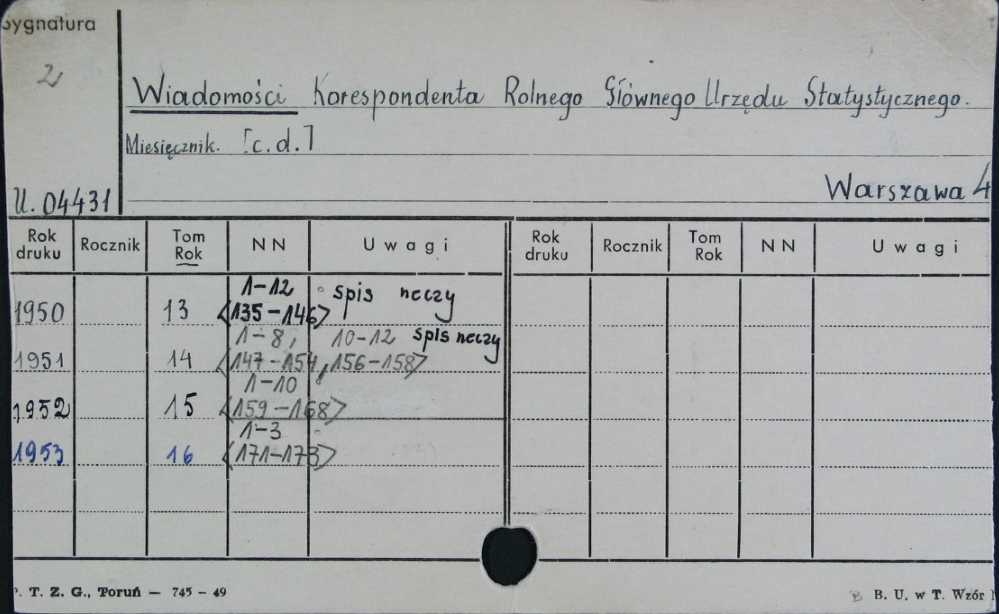 Sygnatura
2
Wiadomości Korespondenta Rolnego Głównego Urzędu Statystycznego.
Miesięcznik. [c.d.]
U. 04431
Warszawa 4
Rok druku Rocznik Tom Rok NN Uwagi Rok druku Rocznik Tom Rok NN Uwagi
1950 13 1-12 <135-146> spis rzeczy
1951 14 1-8, 10-12 <147-154, 156-158> spis rzeczy
1952 15 1-10 <159-168>
1953 16 1-3 <171-173>
T. Z. G., Toruń — 745 - 49
B. U. w T. Wzór